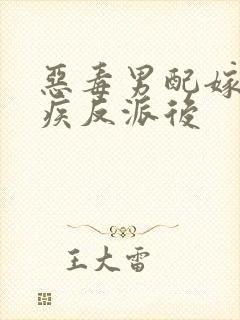 惡毒男配嫁
疾反派後
王大雷